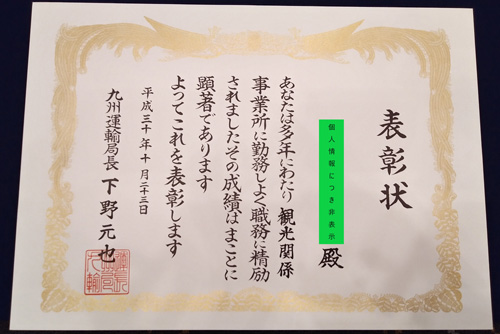 表彰状
個人情報につき非表示
殿
あなたは多年にわたり観光関係
事業所に勤務しよく職務に精励
されましたその成績はまことに
顕著であります
よってこれを表彰します
平成三十年十月二十三日
九州運輸局長 下野元也